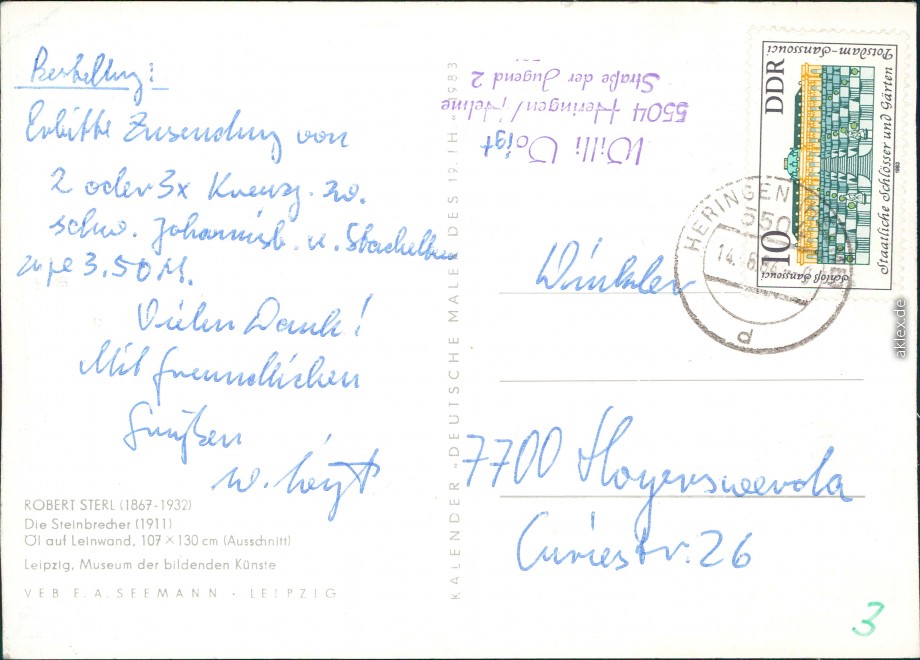 Bestellung:
Erbitte Zusendung von
2 oder 3x Kreuzg. zw.
schw. Johannisb. u. Stachelbeer
zu je 3.50 M.
Vielen Dank!
Mit freundlichen
Grüßen
W. Voigt
ROBERT STERL (1867-1932)
Die Steinbrecher (1911)
Öl auf Leinwand, 107 × 130 cm (Ausschnitt)
Leipzig, Museum der bildenden Künste
VEB E. A. SEEMANN · LEIPZIG
KALENDER »DEUTSCHE MALER DES 19. JH.« 1983
Willi Voigt
5504 Heringen/Helme
Straße der Jugend 2
DDR
10
Schloß Sanssouci
Staatliche Schlösser und Gärten
Potsdam-Sanssouci
1983
HERINGEN
550
14. 6.84
d
Winkler
7700 Hoyerswerda
Curiestr. 26
3
aklex.de